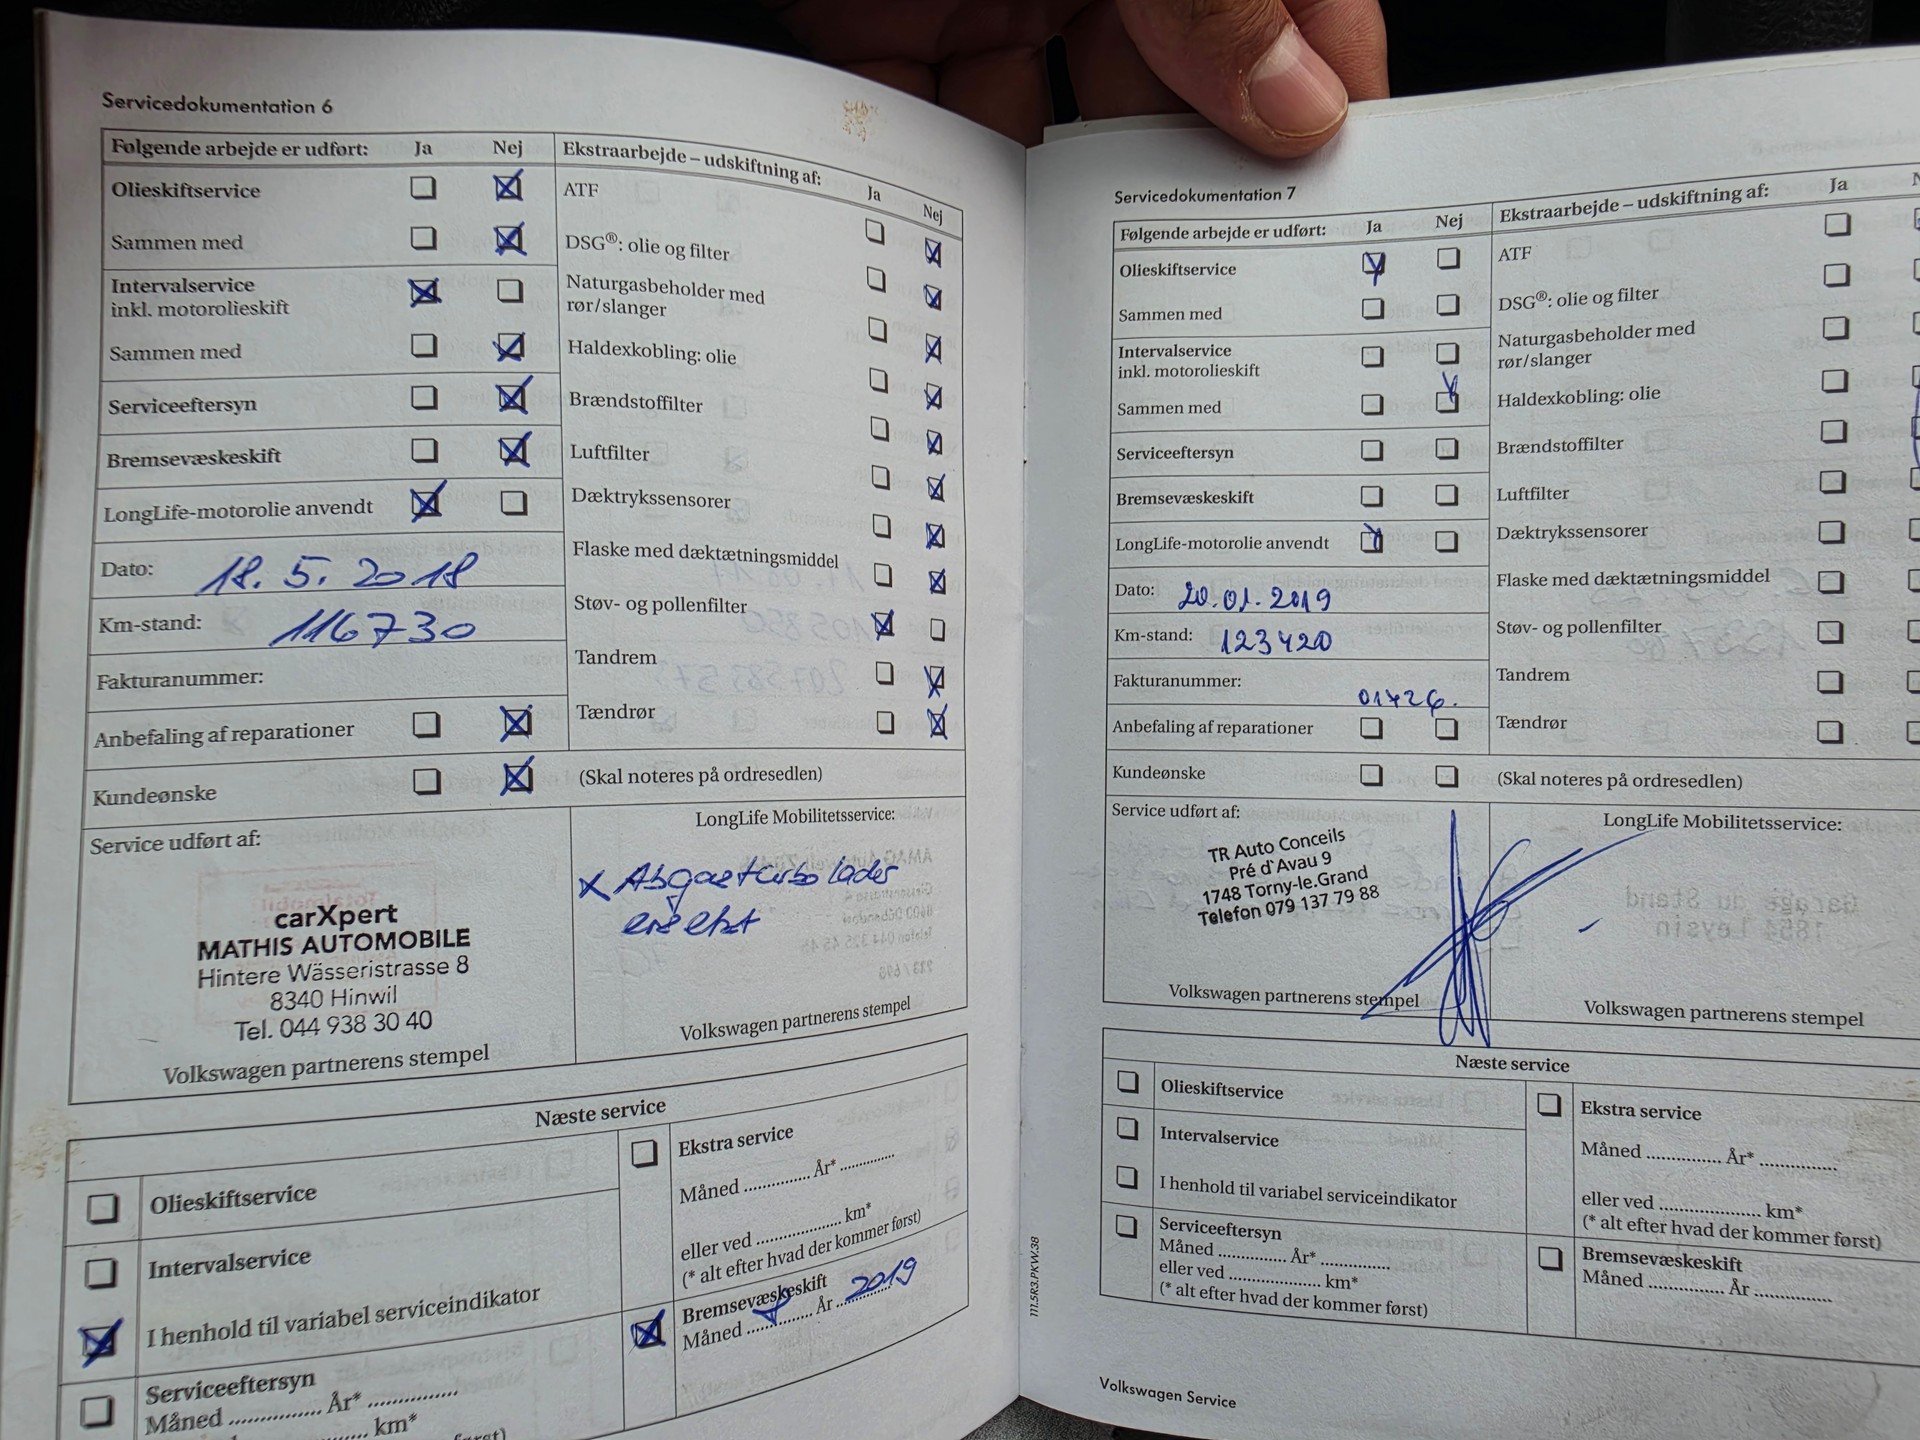 Servicedokumentation 6
Følgende arbejde er udført: Ja Nej
Olieskiftservice
Sammen med
Intervalservice
inkl. motorolieskift
Sammen med
Serviceeftersyn
Bremsevæskeskift
LongLife-motorolie anvendt
Dato: 18.5.2018
Km-stand: 116730
Fakturanummer:
Anbefaling af reparationer
Kundeønske
Ekstraarbejde – udskiftning af: Ja Nej
ATF
DSG®: olie og filter
Naturgasbeholder med
rør/slanger
Haldexkobling: olie
Brændstoffilter
Luftfilter
Dæktrykssensorer
Flaske med dæktætningsmiddel
Støv- og pollenfilter
Tandrem
Tændrør
(Skal noteres på ordresedlen)
Service udført af:
carXpert
MATHIS AUTOMOBILE
Hintere Wässeristrasse 8
8340 Hinwil
Tel. 044 938 30 40
Volkswagen partnerens stempel
LongLife Mobilitetsservice:
x Abgasturbolader
ersetzt
Volkswagen partnerens stempel
Næste service
Olieskiftservice
Intervalservice
I henhold til variabel serviceindikator
Serviceeftersyn
Måned ............... År* ...............
km*
Ekstra service
Måned ............... År* ...............
eller ved ............... km*
(* alt efter hvad der kommer først)
Bremsevæskeskift
Måned ............... År 2019
Servicedokumentation 7
Følgende arbejde er udført: Ja Nej
Olieskiftservice
Sammen med
Intervalservice
inkl. motorolieskift
Sammen med
Serviceeftersyn
Bremsevæskeskift
LongLife-motorolie anvendt
Dato: 20.01.2019
Km-stand: 123420
Fakturanummer: 01426.
Anbefaling af reparationer
Kundeønske
Ekstraarbejde – udskiftning af: Ja
ATF
DSG®: olie og filter
Naturgasbeholder med
rør/slanger
Haldexkobling: olie
Brændstoffilter
Luftfilter
Dæktrykssensorer
Flaske med dæktætningsmiddel
Støv- og pollenfilter
Tandrem
Tændrør
(Skal noteres på ordresedlen)
Service udført af:
TR Auto Conceils
Pré d'Avau 9
1748 Torny-le.Grand
Telefon 079 137 79 88
Volkswagen partnerens stempel
LongLife Mobilitetsservice:
Volkswagen partnerens stempel
Næste service
Olieskiftservice
Intervalservice
I henhold til variabel serviceindikator
Serviceeftersyn
Måned ............... År* ...............
eller ved ............... km*
(* alt efter hvad der kommer først)
Ekstra service
Måned ............... År* ...............
eller ved ............... km*
(* alt efter hvad der kommer først)
Bremsevæskeskift
Måned ............... År ...............
111.5R3.PKW.38
Volkswagen Service